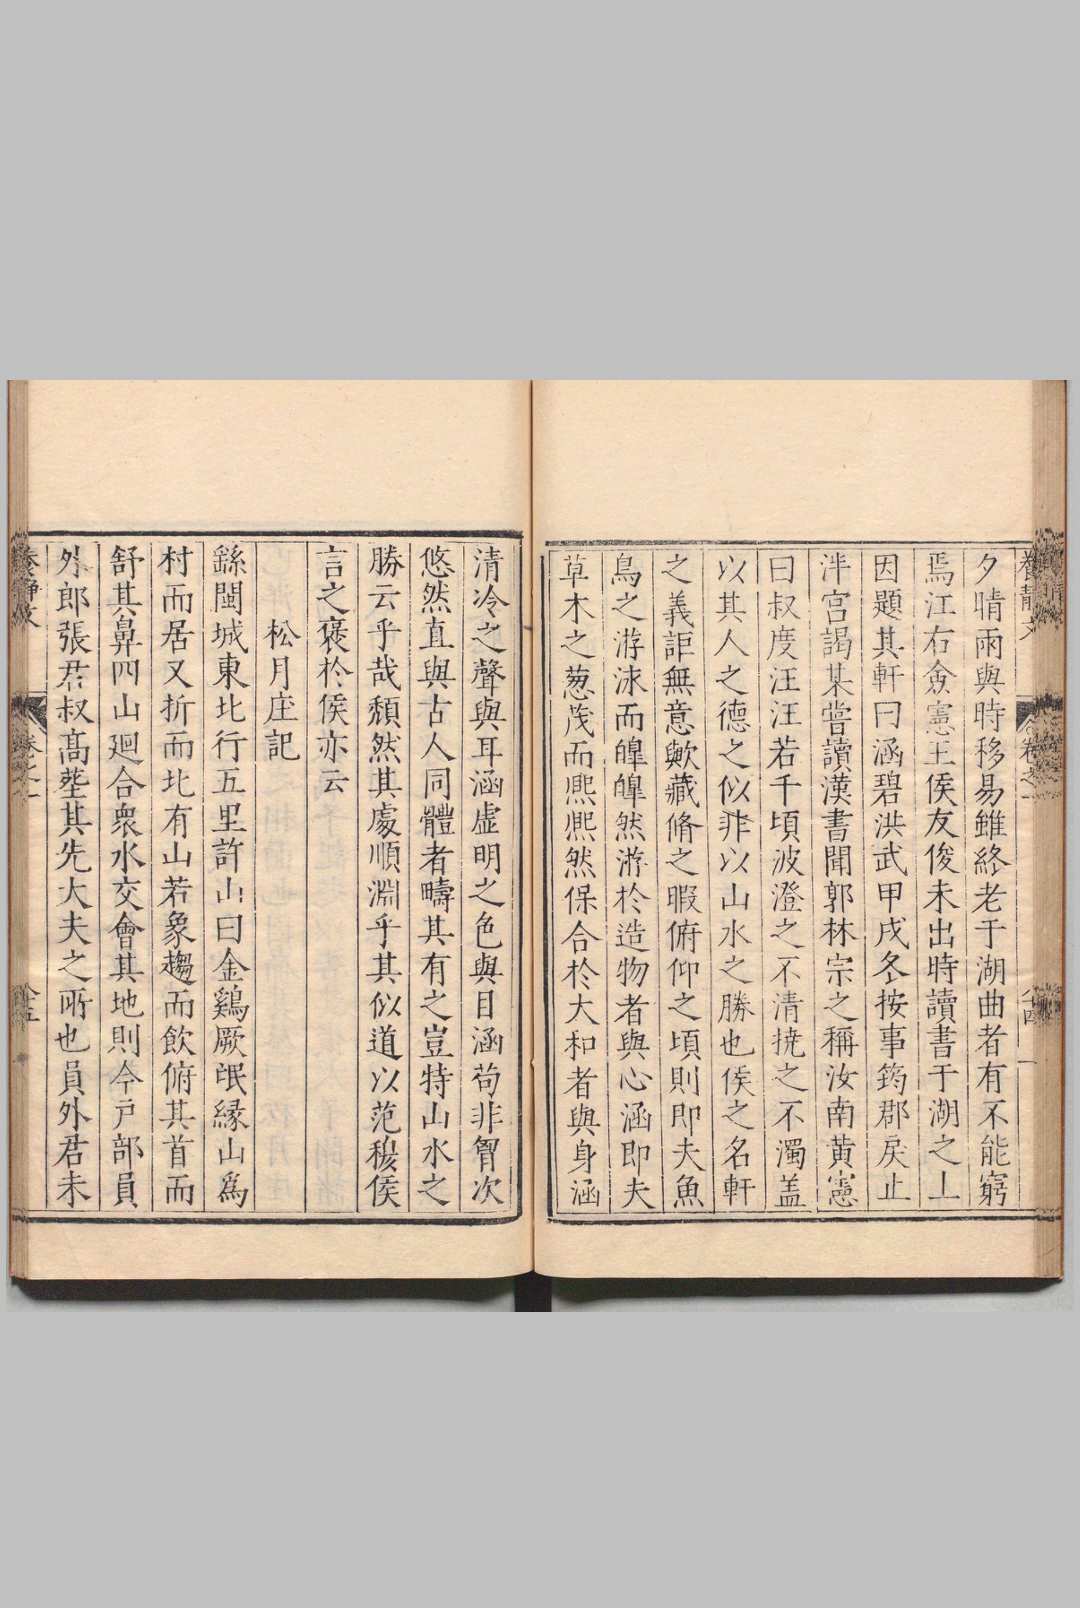 夕晴雨與時移易雖終老于湖曲者有不能窮
焉江右僉憲王侯友俊未出時讀書于湖之上
因題其軒曰涵碧洪武甲戌冬按事筠郡戾止
泮宮謁某嘗讀漢書聞郭林宗之稱汝南黃憲
曰叔度汪汪若千頃波澄之不清撓之不濁盖
以其人之德之似非以山水之勝也侯之名軒
之義詎無意歟藏脩之暇俯仰之頃則即夫魚
鳥之游泳而皥皥然游於造物者與心涵即夫
草木之葱茂而熈熈然保合於大和者與身涵
清冷之聲與耳涵虛明之色與目涵苟非胷次
悠然直與古人同體者疇其有之豈特山水之
勝云乎哉頹然其處順淵乎其似道以范穆侯
言之褒於侯亦云
松月庄記
繇閩城東北行五里許山曰金鷄厥氓緣山爲
村而居又折而北有山若象趨而飲俯其首而
舒其鼻四山廻合衆水交會其地則今户部員
外郎張君叔髙塟其先大夫之所也員外君未